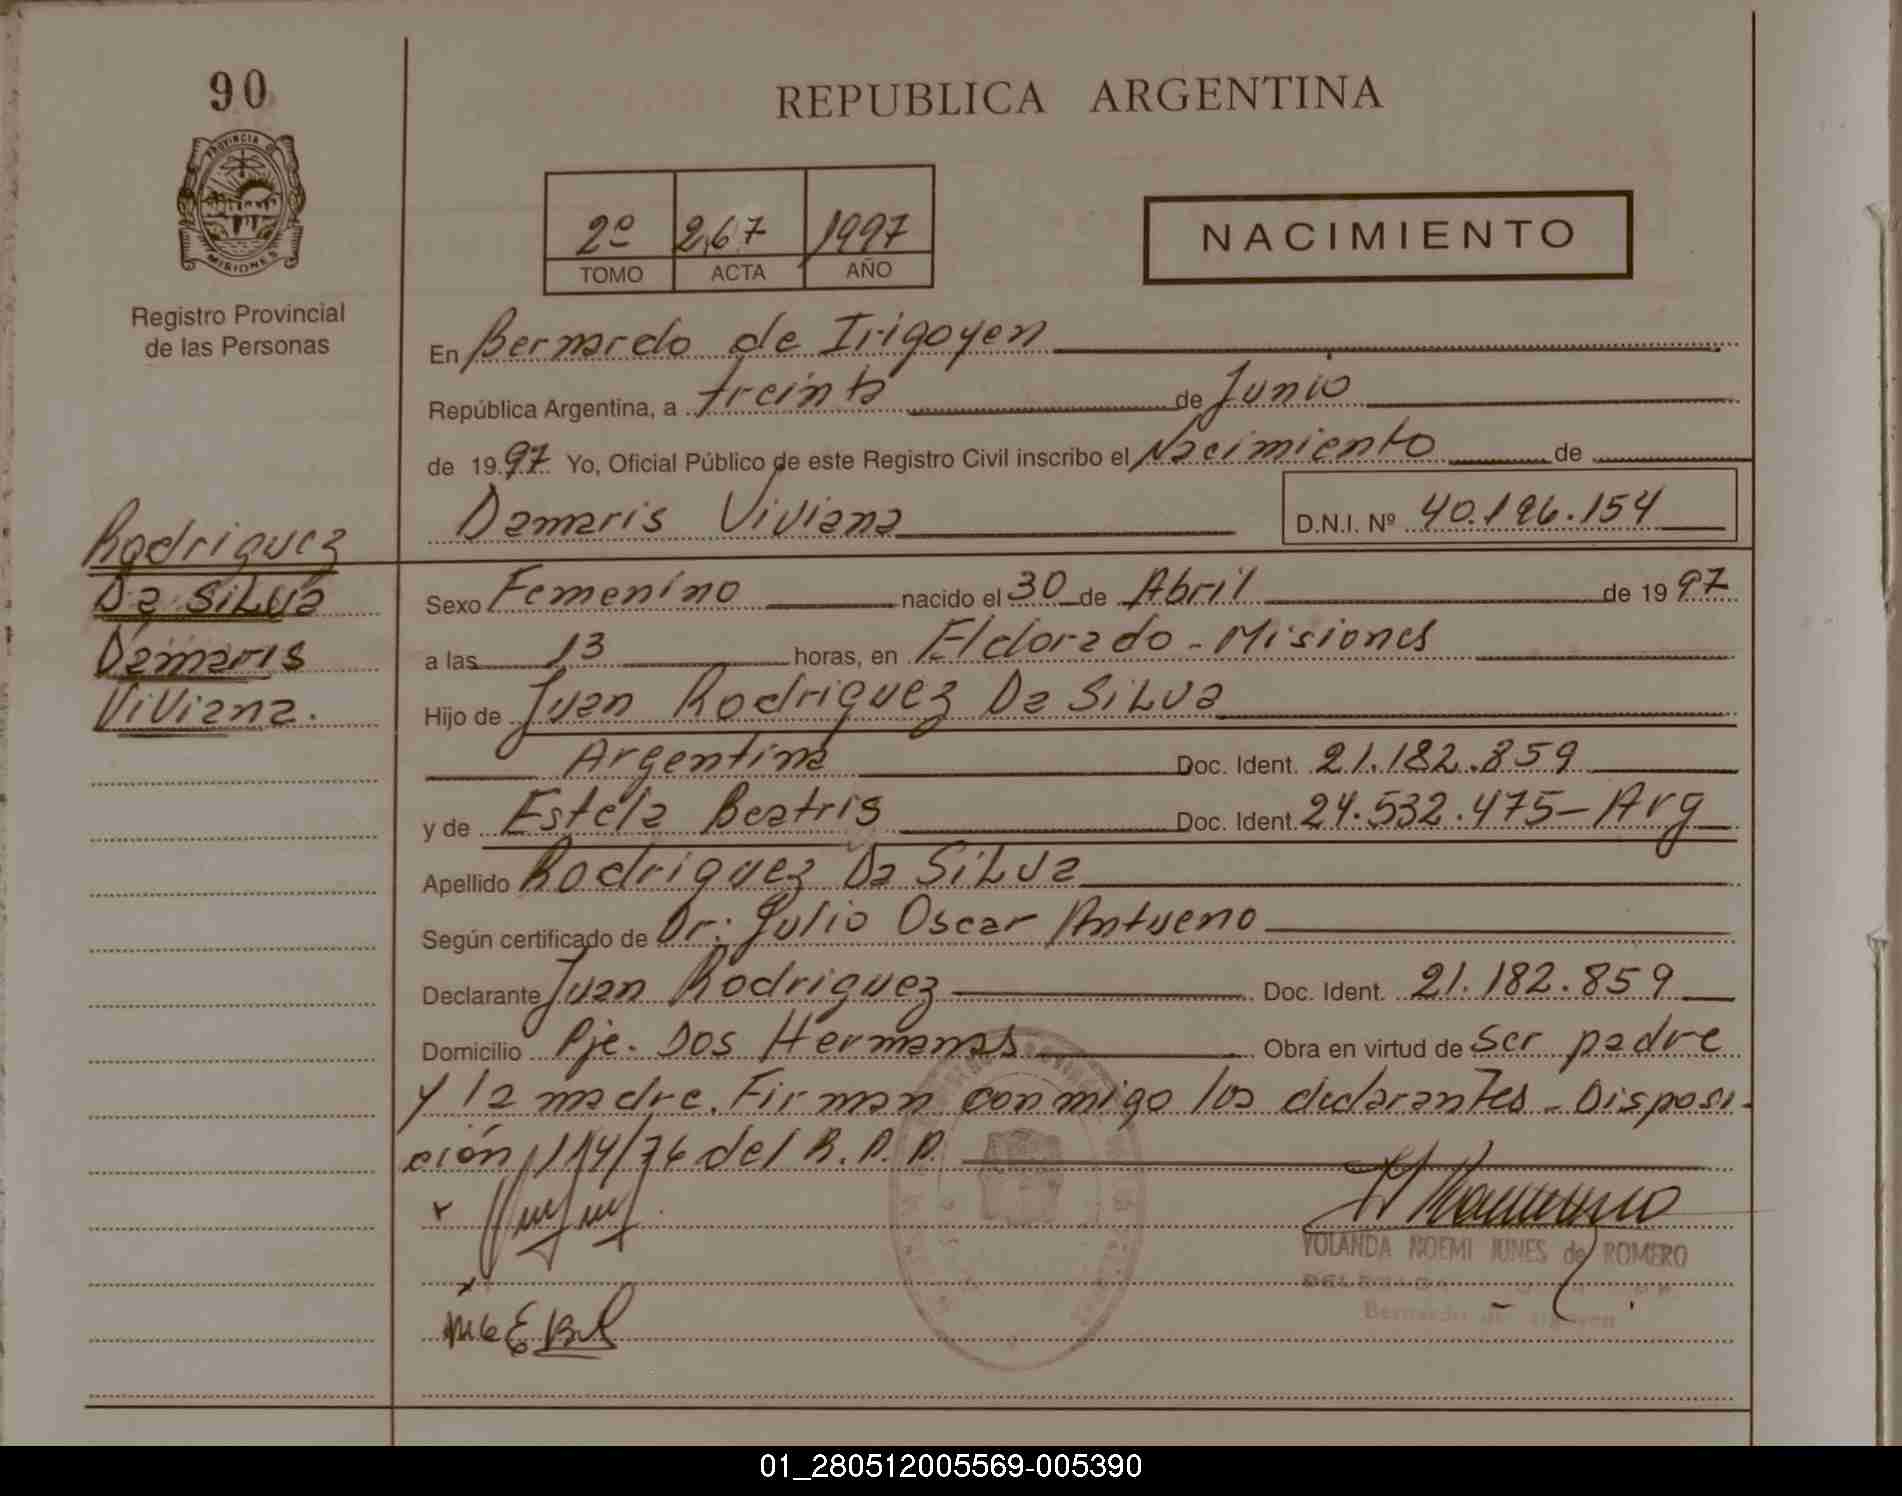 90
REPUBLICA ARGENTINA
PROVINCIA DE
MISIONES
Registro Provincial
de las Personas
2º 267 1997
TOMO ACTA AÑO
NACIMIENTO
En Bernardo de Irigoyen
República Argentina, a treinta de Junio
de 1997 Yo, Oficial Público de este Registro Civil inscribo el Nacimiento de
Damaris Viviana D.N.I. Nº 40.196.154
Rodriguez
Da Silva
Damaris
Viviana.
Sexo Femenino nacido el 30 de Abril de 1997
a las 13 horas, en Eldorado - Misiones
Hijo de Juan Rodriguez Da Silva
Argentina Doc. Ident. 21.182.859
y de Estela Beatris Doc. Ident. 24.532.475 - Arg
Apellido Rodriguez Da Silva
Según certificado de Dr. Julio Oscar Antueno
Declarante Juan Rodriguez Doc. Ident. 21.182.859
Domicilio Pje. Dos Hermanas Obra en virtud de ser padre
y la madre. Firman conmigo los declarantes - Disposi-
ción 114/76 del R.P.P.
YOLANDA NOEMI JUNES de ROMERO
Bernardo de Irigoyen
01_280512005569-005390